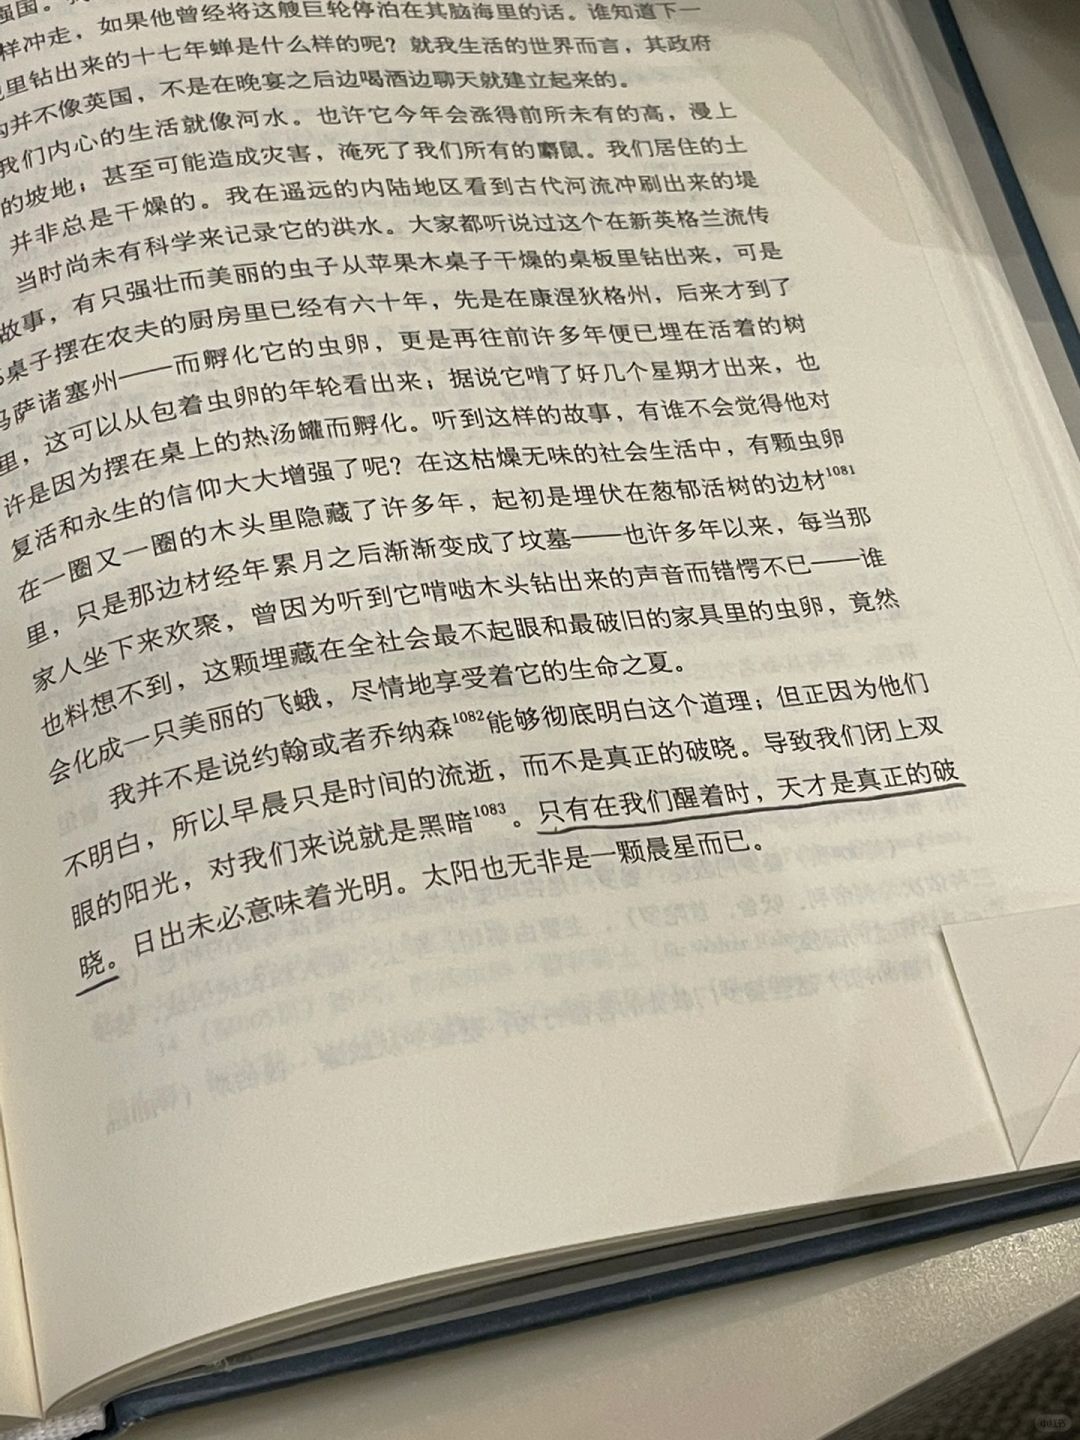 强国。
样冲走，如果他曾经将这艘巨轮停泊在其脑海里的话。谁知道下一
里钻出来的十七年蝉是什么样的呢？就我生活的世界而言，其政府
并不像英国，不是在晚宴之后边喝酒边聊天就建立起来的。
我们内心的生活就像河水。也许它今年会涨得前所未有的高，漫上
的坡地；甚至可能造成灾害，淹死了我们所有的麝鼠。我们居住的土
并非总是干燥的。我在遥远的内陆地区看到古代河流冲刷出来的堤
当时尚未有科学来记录它的洪水。大家都听说过这个在新英格兰流传
故事，有只强壮而美丽的虫子从苹果木桌子干燥的桌板里钻出来，可是
桌子摆在农夫的厨房里已经有六十年，先是在康涅狄格州，后来才到了
马萨诸塞州——而孵化它的虫卵，更是再往前许多年便已埋在活着的树
里，这可以从包着虫卵的年轮看出来；据说它啃了好几个星期才出来，也
许是因为摆在桌上的热汤罐而孵化。听到这样的故事，有谁不会觉得他对
复活和永生的信仰大大增强了呢？在这枯燥无味的社会生活中，有颗虫卵
在一圈又一圈的木头里隐藏了许多年，起初是埋伏在葱郁活树的边材1081
里，只是那边材经年累月之后渐渐变成了坟墓——也许多年以来，每当那
家人坐下来欢聚，曾因为听到它啃啮木头钻出来的声音而错愕不已——谁
也料想不到，这颗埋藏在全社会最不起眼和最破旧的家具里的虫卵，竟然
会化成一只美丽的飞蛾，尽情地享受着它的生命之夏。
我并不是说约翰或者乔纳森1082能够彻底明白这个道理；但正因为他们
不明白，所以早晨只是时间的流逝，而不是真正的破晓。导致我们闭上双
眼的阳光，对我们来说就是黑暗1083。只有在我们醒着时，天才是真正的破
晓。日出未必意味着光明。太阳也无非是一颗晨星而已。
小红书